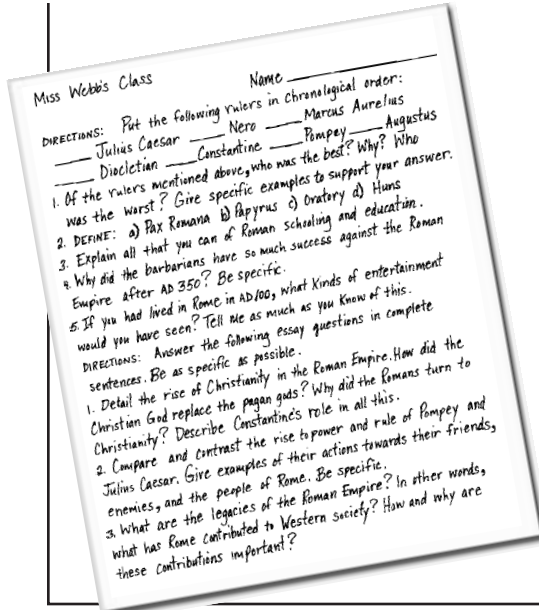 Miss Webb's Class Name
DIRECTIONS: Put the following rulers in chronological order:
____ Julius Caesar ____ Nero ____ Marcus Aurelius
____ Diocletian ____ Constantine ____ Pompey ____ Augustus
1. Of the rulers mentioned above, who was the best? Why? Who
was the worst? Give specific examples to support your answer.
2. DEFINE: a) Pax Romana b) Papyrus c) Oratory d) Huns
3. Explain all that you can of Roman schooling and education.
4. Why did the barbarians have so much success against the Roman
Empire after AD 350? Be specific.
5. If you had lived in Rome in AD 100, what kinds of entertainment
would you have seen? Tell me as much as you know of this.
DIRECTIONS: Answer the following essay questions in complete
sentences. Be as specific as possible.
1. Detail the rise of Christianity in the Roman Empire. How did the
Christian God replace the pagan gods? Why did the Romans turn to
Christianity? Describe Constantine's role in all this.
2. Compare and contrast the rise to power and rule of Pompey and
Julius Caesar. Give examples of their actions towards their friends,
enemies, and the people of Rome. Be specific.
3. What are the legacies of the Roman Empire? In other words,
what has Rome contributed to Western society? How and why are
these contributions important?